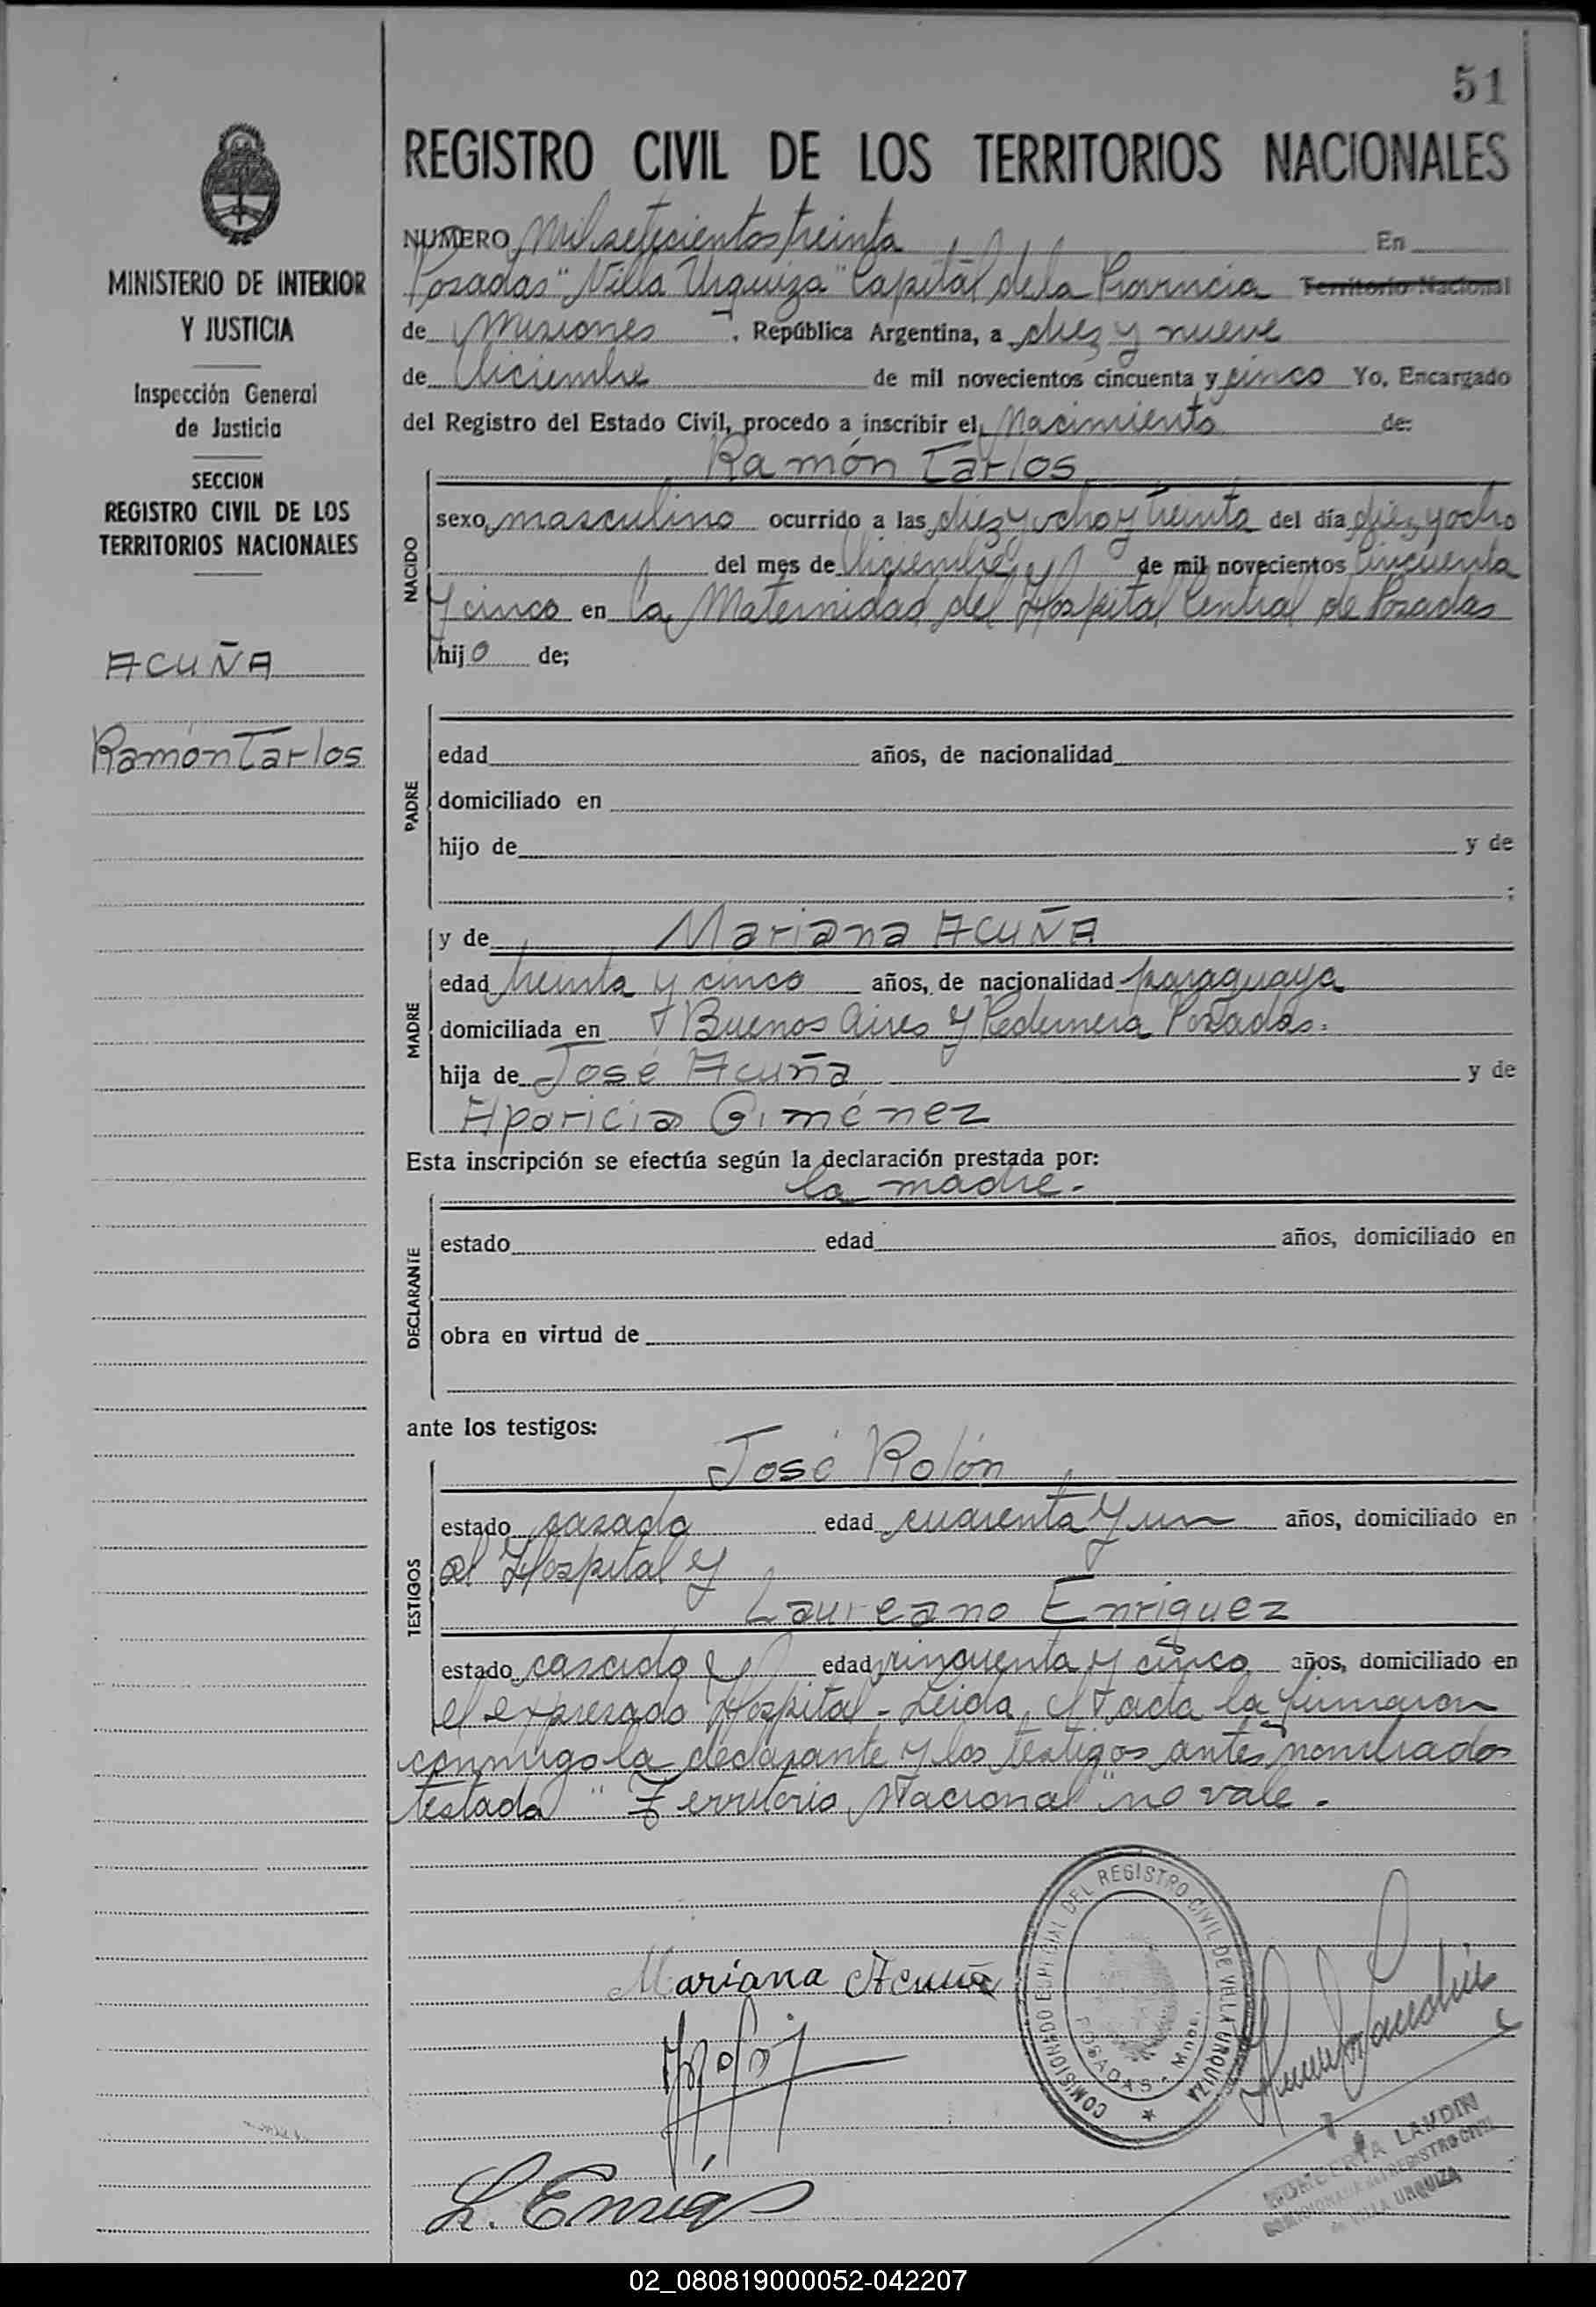 51
REGISTRO CIVIL DE LOS TERRITORIOS NACIONALES
MINISTERIO DE INTERIOR
Y JUSTICIA
Inspección General
de Justicia
SECCION
REGISTRO CIVIL DE LOS
TERRITORIOS NACIONALES
ACUÑA
Ramón Tarlos
NUMERO Mil setecientos treinta En
Posadas "Villa Urquiza" Capital de la Provincia Territorio Nacional
de Misiones, República Argentina, a diez y nueve
de Diciembre de mil novecientos cincuenta y cinco Yo, Encargado
del Registro del Estado Civil, procedo a inscribir el Nacimiento de:
Ramón Tarlos
NACIDO
sexo masculino ocurrido a las diez y ocho y treinta del día diez y ocho
del mes de Diciembre de mil novecientos cincuenta
y cinco en la Maternidad del Hospital Central de Posadas
hijo de;
PADRE
edad años, de nacionalidad
domiciliado en
hijo de y de
;
MADRE
y de Mariana ACUÑA
edad treinta y cinco años, de nacionalidad paraguaya
domiciliada en Buenos Aires y Pedernera Posadas
hija de José Acuña y de
Aparicia Giménez
Esta inscripción se efectúa según la declaración prestada por:
la madre.-
DECLARANTE
estado edad años, domiciliado en
obra en virtud de
ante los testigos:
José Rolón
TESTIGOS
estado casado edad cuarenta y un años, domiciliado en
el Hospital y
Laureano Enriquez
estado casado y edad cincuenta y cinco años, domiciliado en
el expresado Hospital - Leida el acta la firmaron
conmigo la declarante y los testigos antes nombrados
testado "Territorio Nacional" no vale.
Mariana Acuña
COMISIONADO ESPECIAL DEL REGISTRO CIVIL DE VILLA URQUIZA
POSADAS - Mnes.
L. Enriq
LANDIN
REGISTRO CIVIL
VILLA URQUIZA
02_080819000052-042207